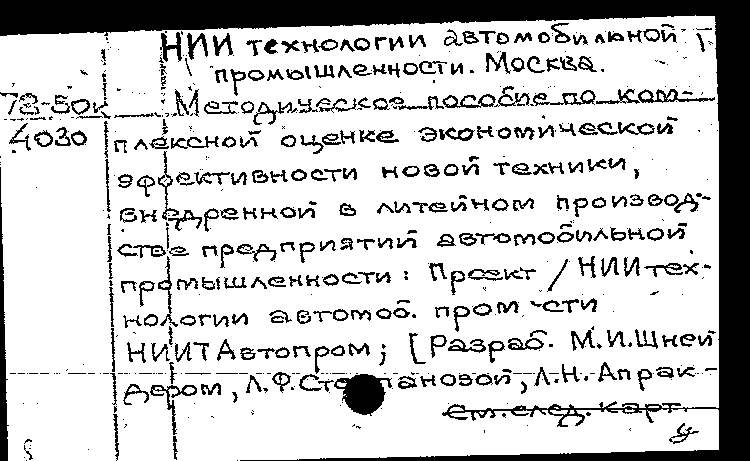 НИИ технологии автомобильной
промышленности. Москва.
78-50к Методическое пособие по ком-
4030 плексной оценке экономической
эффективности новой техники,
внедренной в литейном производ-
стве предприятий автомобильной
промышленности: Проект / НИИ тех-
нологии автомоб. пром-сти
НИИТАвтопром; [Разраб. М.И.Шней
дером, Л.Ф.Степановой, Л.Н.Апрак-
см. след. карт.